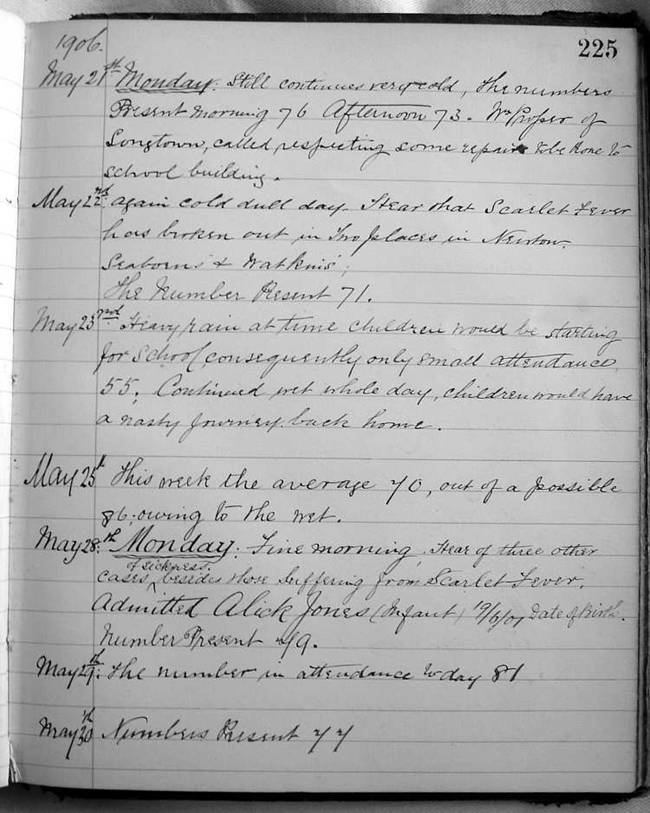 1906. 225
May 21st Monday. Still continues very cold, the numbers
Present morning 76 Afternoon 73. Wm Prosser of
Longtown, called respecting some repairs to be done to
school building.
May 22nd. again cold dull day. Hear that Scarlet Fever
has broken out in two places in Newton.
Seaborns' & Watkins';
The Number Present 71.
May 23rd. Heavy rain at time children would be starting
for School, consequently only small attendance
55. Continued wet whole day, children would have
a nasty journey back home.
May 25t This week the average 70, out of a possible
86, owing to the wet.
May 28th. Monday. Fine morning, Hear of three other
of sickness,
cases, besides those suffering from Scarlet Fever.
Admitted Alick Jones (Infant) Date of Birth.
Number Present 79.
May 29th: The number in attendance to day 81
May 30th Numbers Present 77